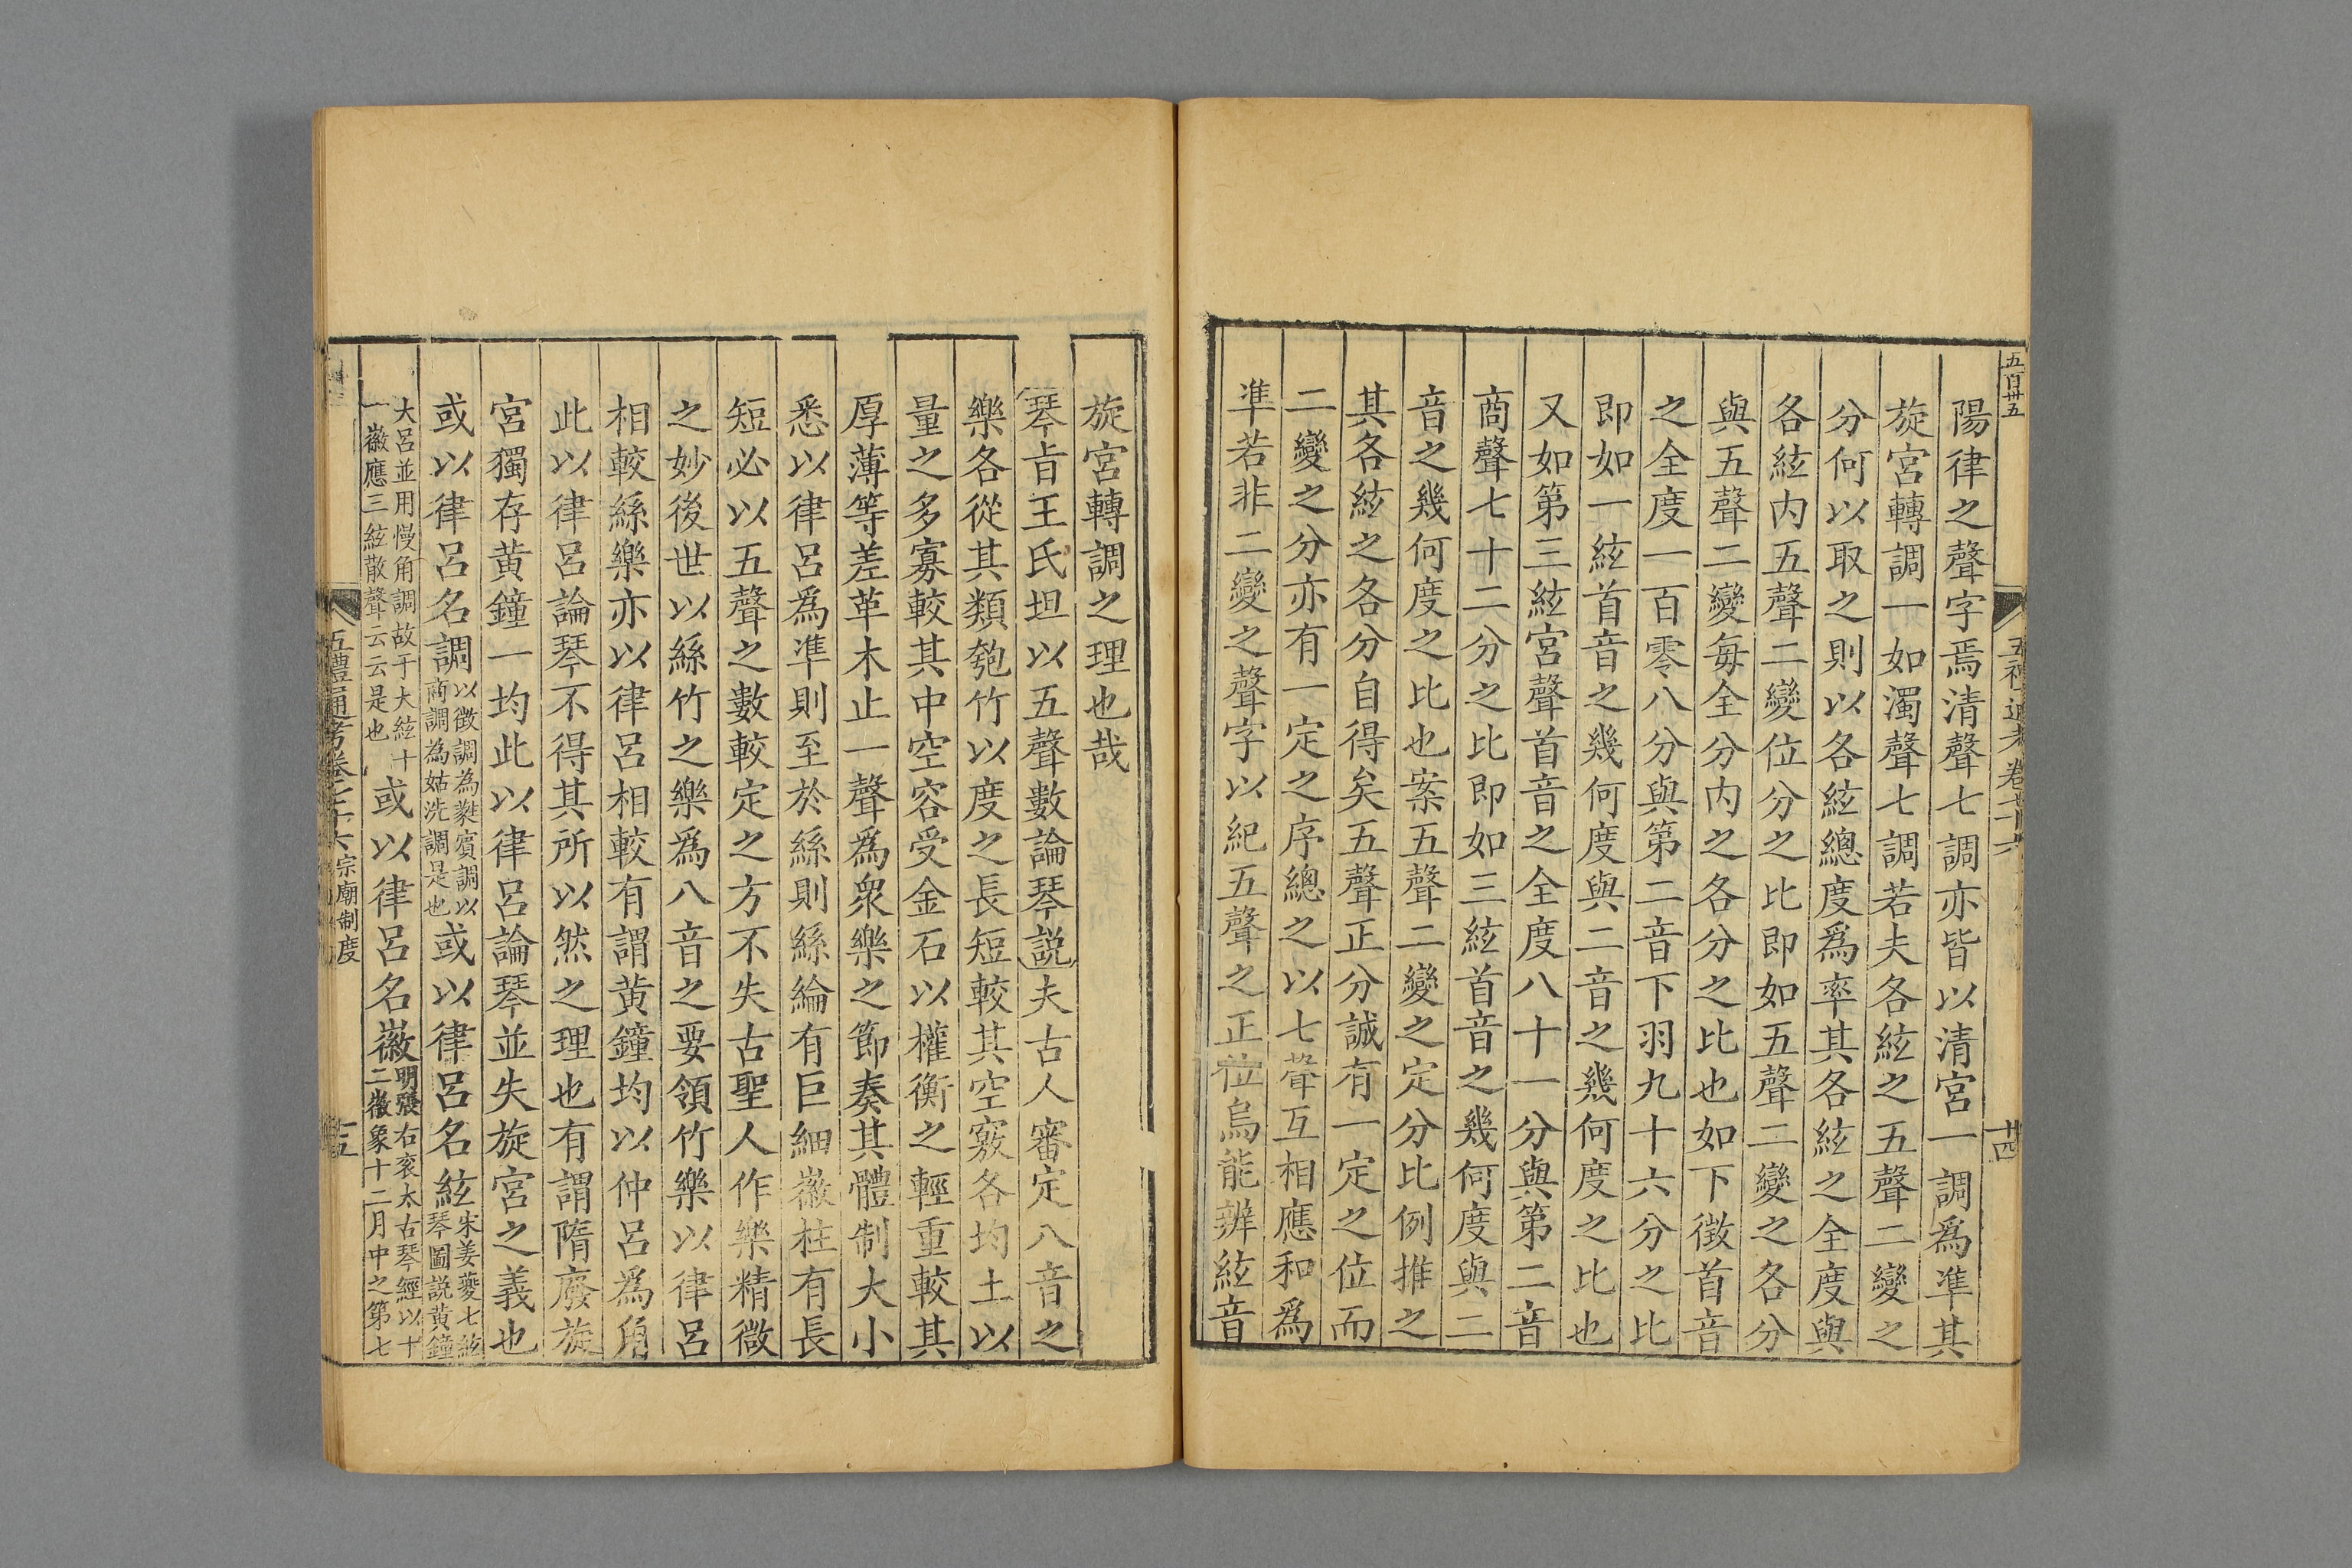 五百卅五
陽律之聲字焉清聲七調亦皆以清宮一調爲準其
旋宮轉調一如濁聲七調若夫各絃之五聲二變之
分何以取之則以各絃總度爲率其各絃之全度與
各絃内五聲二變位分之比即如五聲二變之各分
與五聲二變每全分内之各分之比也如下徵首音
之全度一百零八分與第二音下羽九十六分之比
即如一絃首音之幾何度與二音之幾何度之比也
又如第三絃宮聲首音之全度八十一分與第二音
商聲七十二分之比即如三絃首音之幾何度與二
音之幾何度之比也案五聲二變之定分比例推之
其各絃之各分自得矣五聲正分誠有一定之位而
二變之分亦有一定之序總之以七聲互相應和爲
準若非二變之聲字以紀五聲之正位烏能辨絃音
旋宮轉調之理也哉
琴旨王氏坦以五聲數論琴説夫古人審定八音之
樂各從其類匏竹以度之長短較其空竅各均土以
量之多寡較其中空容受金石以權衡之輕重較其
厚薄等差革木止一聲爲衆樂之節奏其體制大小
悉以律呂爲準則至於絲則絲綸有巨細徽柱有長
短必以五聲之數較定之方不失古聖人作樂精微
之妙後世以絲竹之樂爲八音之要領竹樂以律呂
相較絲樂亦以律呂相較有謂黄鐘均以仲呂爲角
此以律呂論琴不得其所以然之理也有謂隋廢旋
宮獨存黄鐘一均此以律呂論琴並失旋宮之義也
或以律呂名調以徵調為蕤賓調以商調為姑洗調是也或以律呂名絃宋姜夔七絃琴圖説黄鐘
大呂並用慢角調故于大絃十一徽應三絃散聲云云是也或以律呂名徽明張右袞太古琴經以十二徽象十二月中之第七
五禮通考卷七十六 宗廟制度